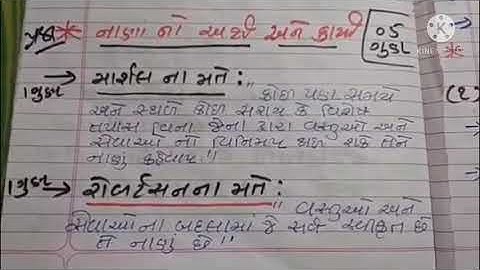 પ્રશ્ન * નાણાં નો અર્થ અને કાર્યો
૦૫
ગુણ
KINE
→ માર્શલ ના મતે : "કોઈ પણ સમય
૧ ગુણ
અને સ્થળે કોઈ સંશય કે વિશેષ
તપાસ વિના જેના દ્વારા વસ્તુઓ અને
સેવાઓ નો વિનિમય થઈ શકે તેને
નાણું કહેવાય."
(૨)
૧ ગુણ → રોબર્ટસનના મતે : "વસ્તુઓ અને
સેવાઓના બદલામાં જે સર્વ સ્વીકૃત છે
તે નાણું છે"